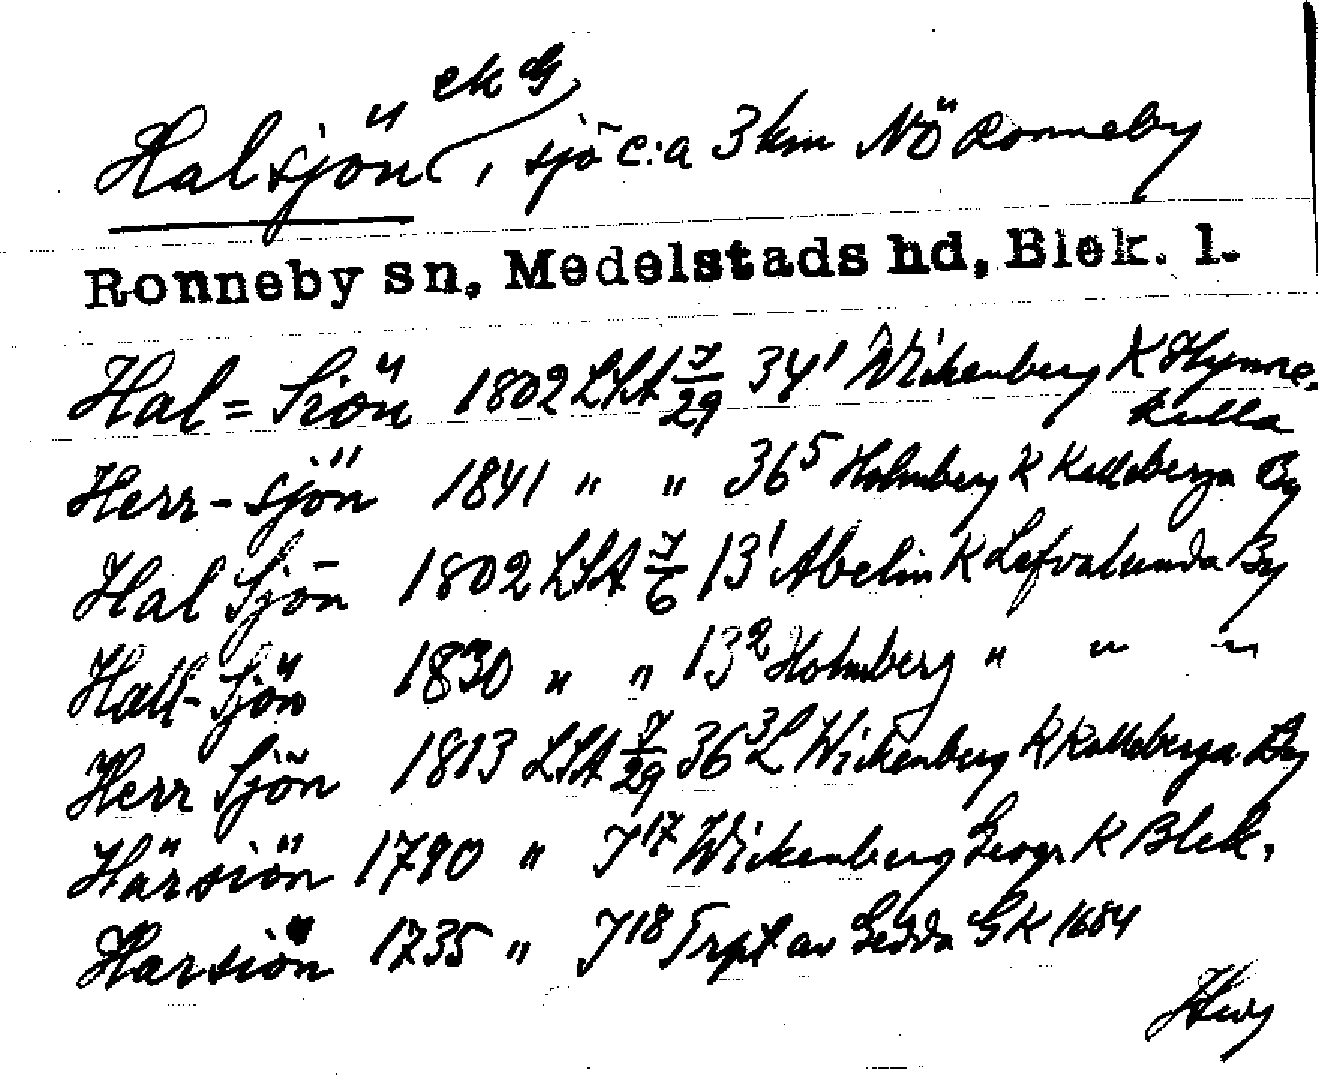 ek G
Halsjön, sjö c:a 3 km NÖ Ronneby
Ronneby sn, Medelstads hd, Blek. l.
Hal = Siön 1802 LSA 7/29 34¹ Wickenberg K Hymne-
kulla
Herr-sjön 1841 " " 36⁵ Holmberg K Kalleberga By
Hal Sjön 1802 LSA 7/6 13¹ Abelin K Lefvalunda By
Hall-Sjön 1830 " " 13² Holmberg " " "
Herr Sjön 1813 LSA 7/29 36³ L Wickenberg K Kalleberga By
Härsiön 1790 " 7¹⁷ Wickenberg Geogr K Blek.
Harsiön 1735 " 7¹⁸ Trpt av Gedda GK 1684